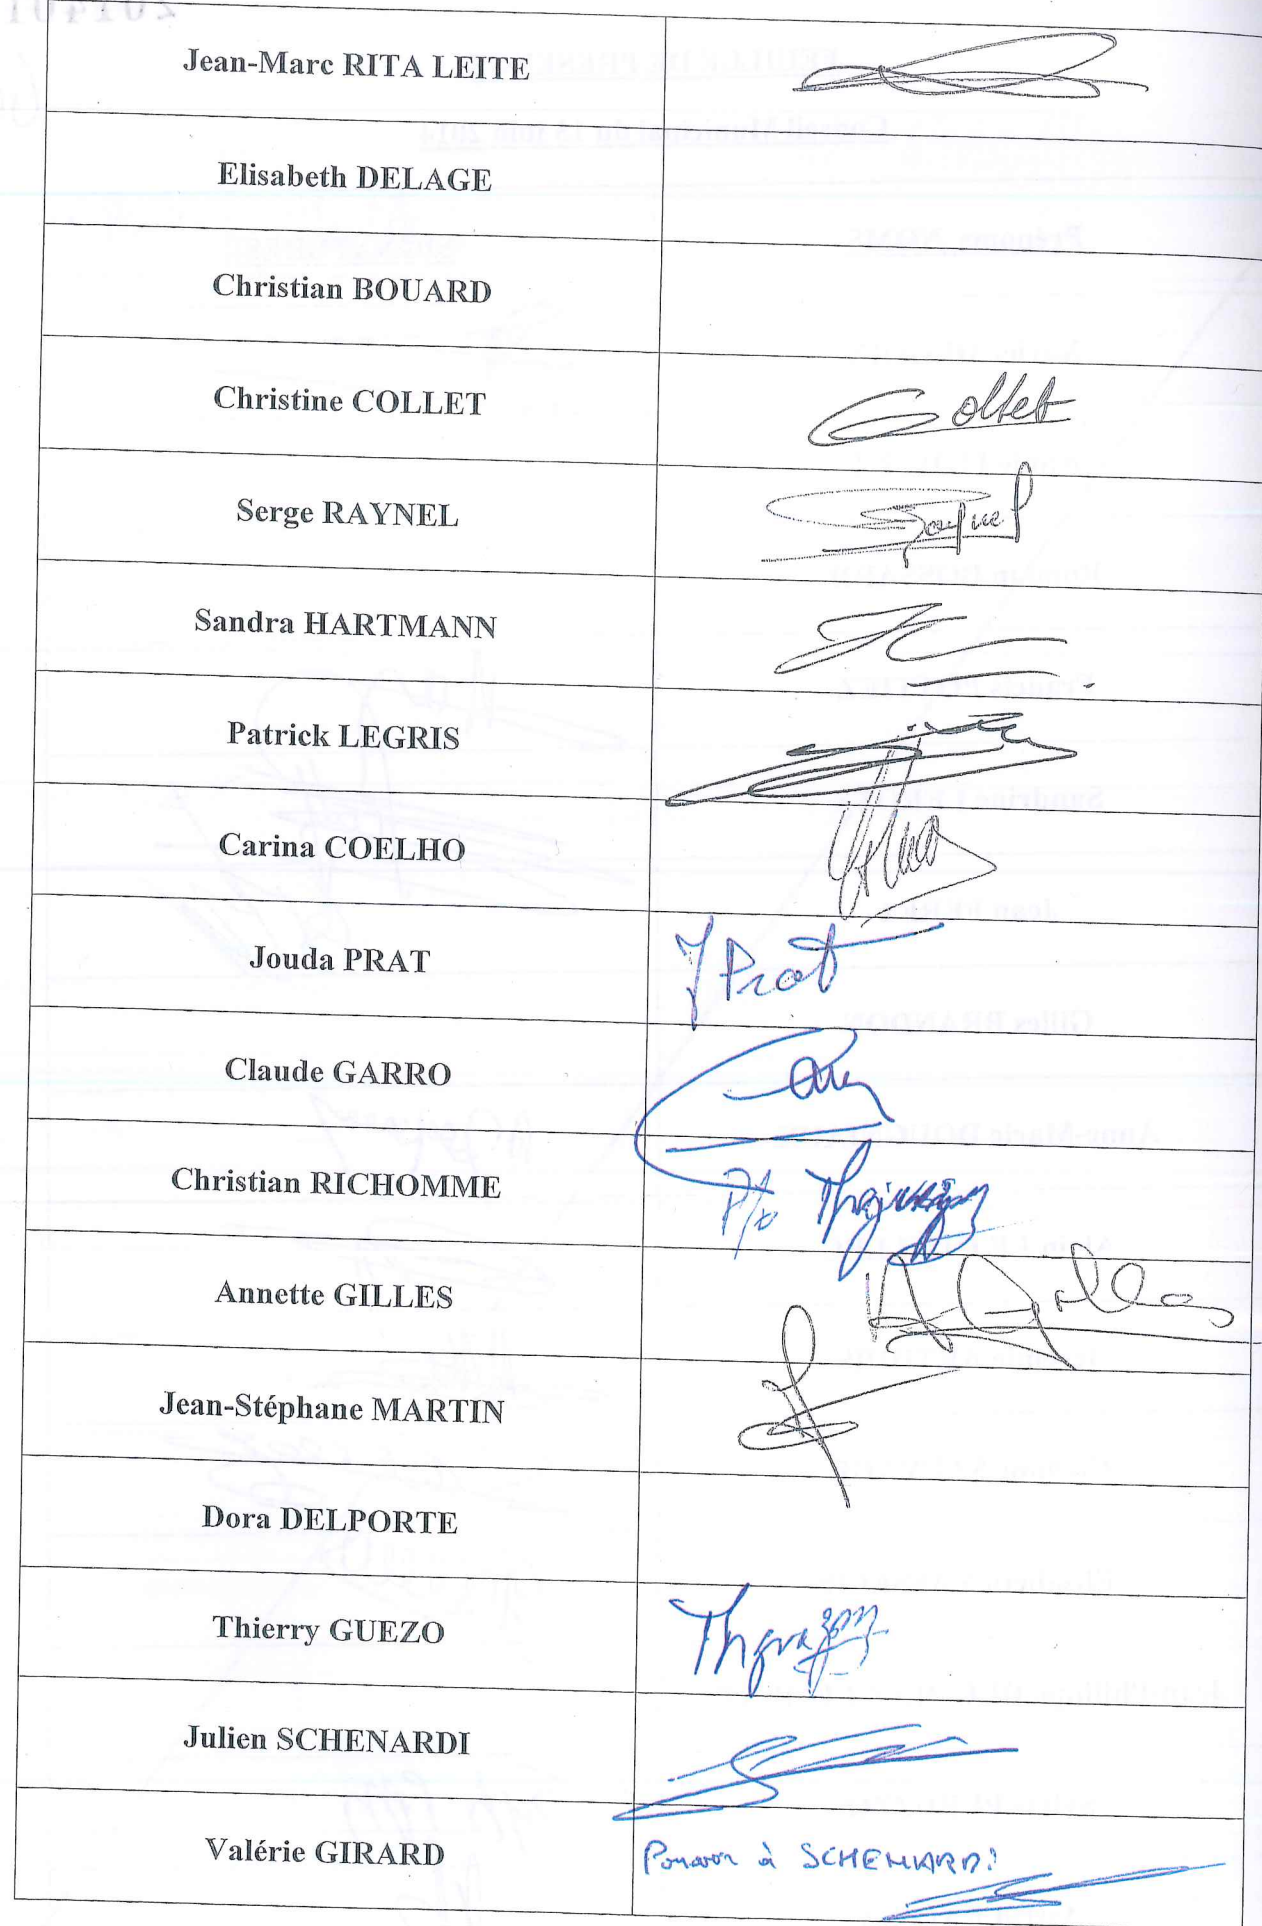 Jean-Marc RITA LEITE
Elisabeth DELAGE
Christian BOUARD
Christine COLLET
Collet
Serge RAYNEL
Raynel
Sandra HARTMANN
Patrick LEGRIS
Carina COELHO
Jouda PRAT
J Prat
Claude GARRO
Christian RICHOMME
P/o
Annette GILLES
A Gilles
Jean-Stéphane MARTIN
Dora DELPORTE
Thierry GUEZO
Julien SCHENARDI
Valérie GIRARD
Pouvoir à SCHENARDI